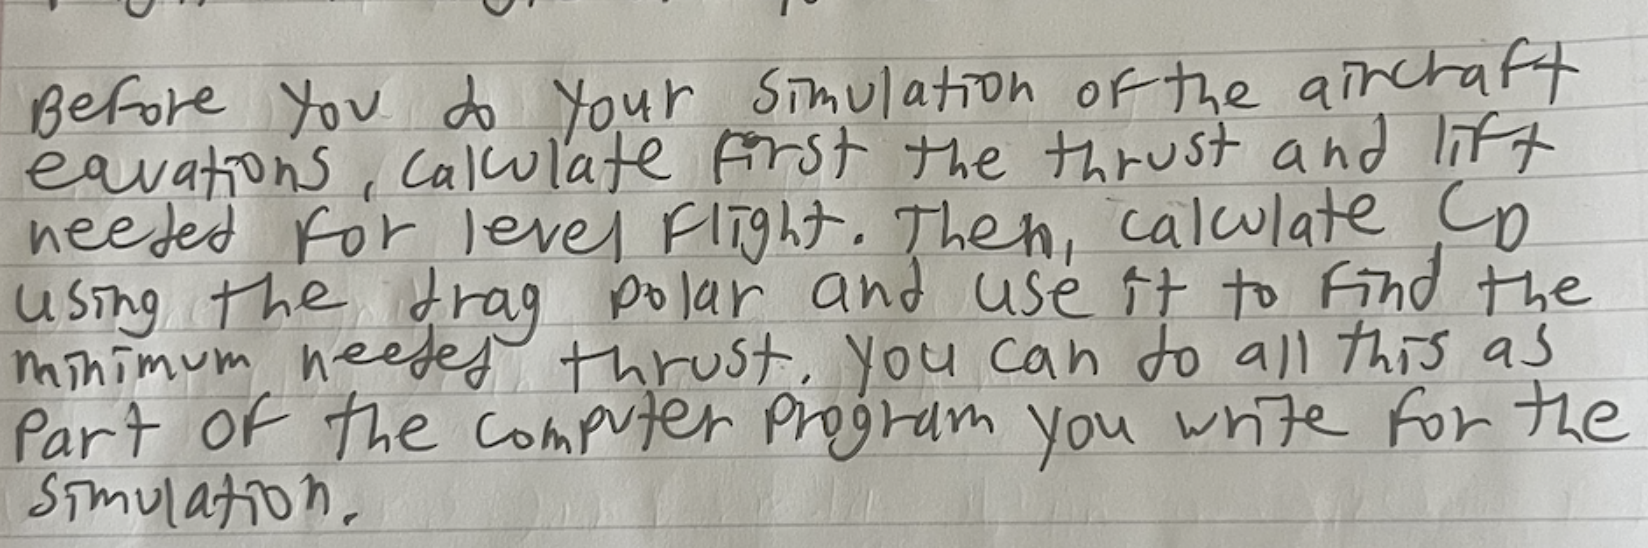 Before you do your simulation of the aircraft
equations, calculate first the thrust and lift
needed for level flight. Then, calculate CD
using the drag polar and use it to find the
minimum needed thrust. You can do all this as
part of the computer program you write for the
simulation.